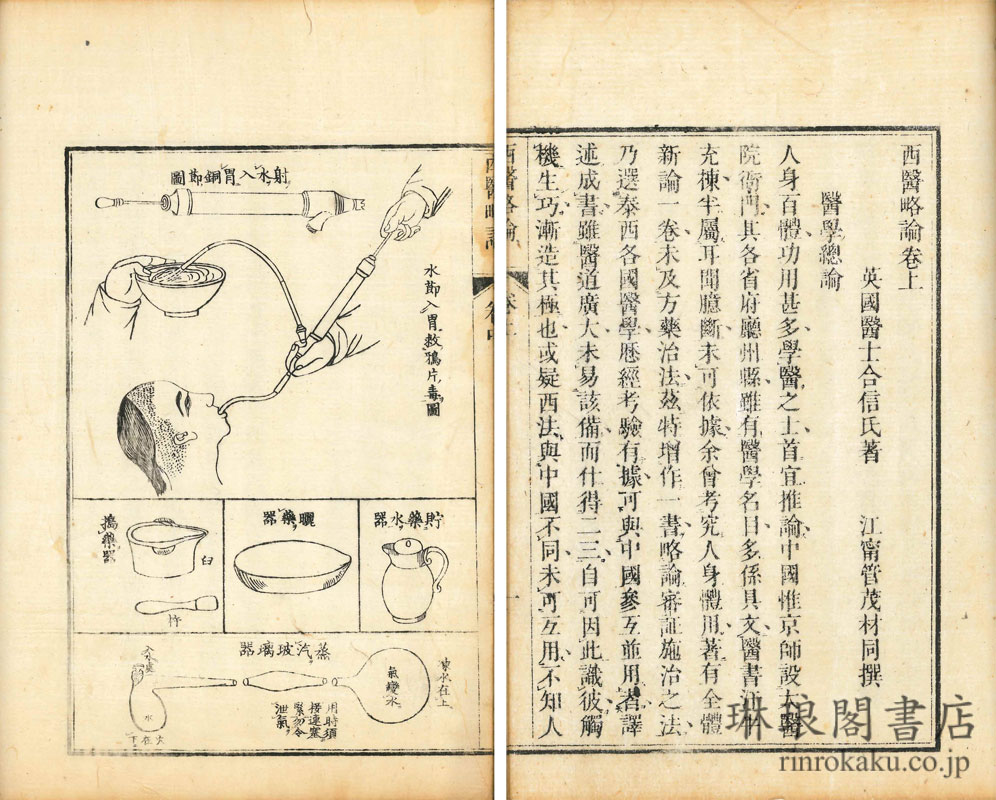 西醫略論卷上
英國醫士合信氏著 江甯管茂材同撰
醫學總論
人身百體功用甚多學醫之士首宜推論中國惟京師設太醫
院衙門其各省府廳州縣雖有醫學名目多係具文醫書汗牛
充棟半屬耳聞臆斷未可依據余曾考究人身體用著有全體
新論一卷未及方藥治法茲特增作一書略論審証施治之法
乃選泰西各國醫學歷經考驗有據可與中國參互並用者譯
述成書雖醫道廣大未易該備而什得二三自可因此識彼觸
機生巧漸造其極也或疑西法與中國不同未可互用不知人
西醫略論
射水入胃銅節圖
水節入胃救鴉片毒圖
貯藥水器
曬藥器
搗藥器
臼
杵
蒸汽玻璃器
凍水在上
氣變水
用時須
接連塞
緊勿令
泄氣
入水處
水
火在下
琳琅閣書店
rinrokaku.co.jp